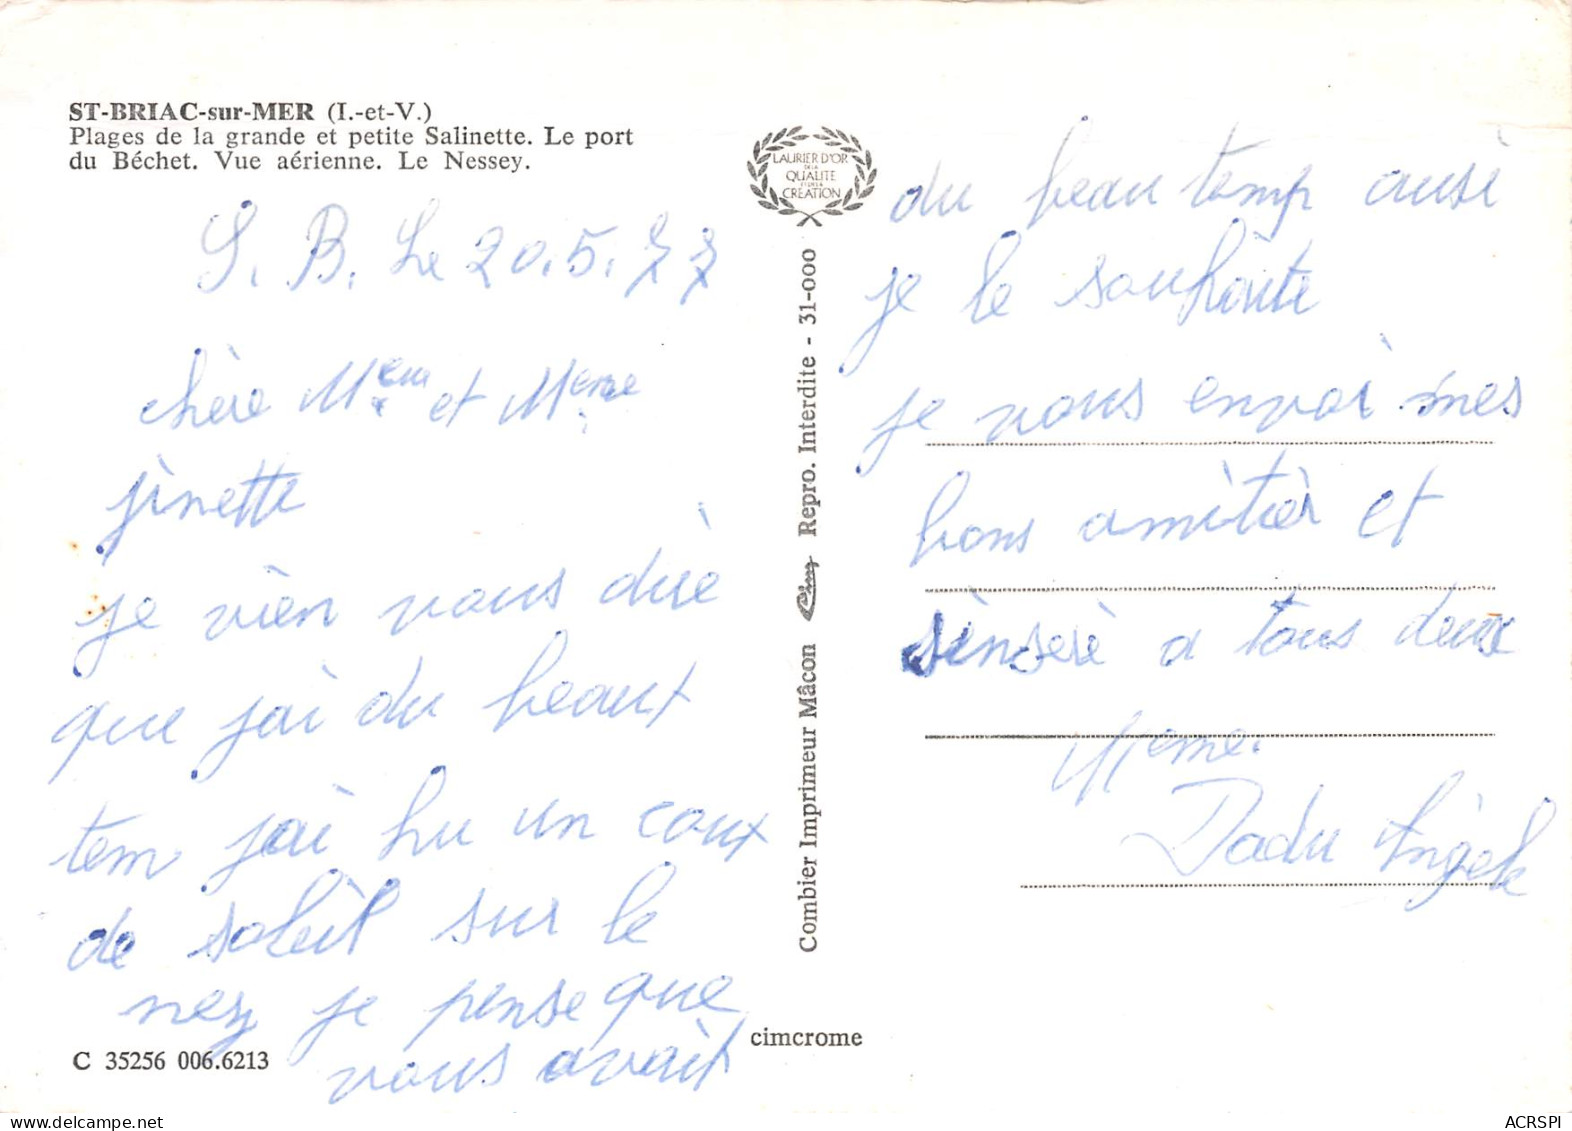 ST-BRIAC-sur-MER (I.-et-V.)
Plages de la grande et petite Salinette. Le port
du Béchet. Vue aérienne. Le Nessey.
S. B. Le 20.5.77
chère Meur et Meme
jinette
je vien vous diré
que jai du beaux
tem jai hu un coux
de soleil sur le
nez je pense que
vous avait
C 35256 006.6213
LAURIER D'OR
DE LA
QUALITE
ET DE LA
CREATION
Combier Imprimeur Mâcon Cim Repro. Interdite - 31-000
cimcrome
du beau temp ausi
je le souhaite
je vous envoi mes
bons amitièr et
sinserè a tous deux
Meme.
Dadu Angèle
ACRSPI